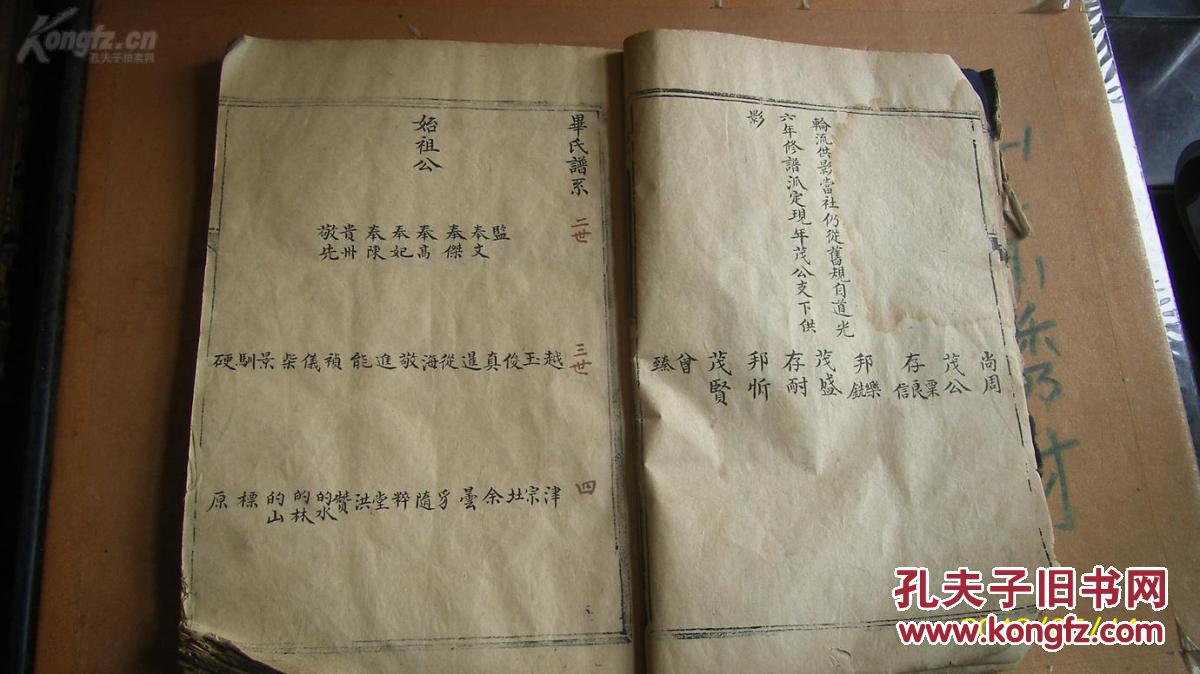 輪流供影當社仍從舊規自道光
六年修譜派定現年茂公支下供
影
尚周
茂公
存 栗良信
邦 樂銑
茂盛
存耐
邦忻
茂賢
曾
臻
畢氏譜系
始祖公
二世
監
奉文
奉傑
奉髙
奉妃
奉陳
貴卅
敬先
三世
越 玉 俊 真 暹 從 海 敬 進 能 禎 儀 柴 景 馴 硬
四
津 宗 灶 余 曇 隨 粹 堂 洪 贊 的水 的林 的山 標 原
Kongfz.cn
孔夫子拍卖网
孔夫子旧书网
www.kongfz.com